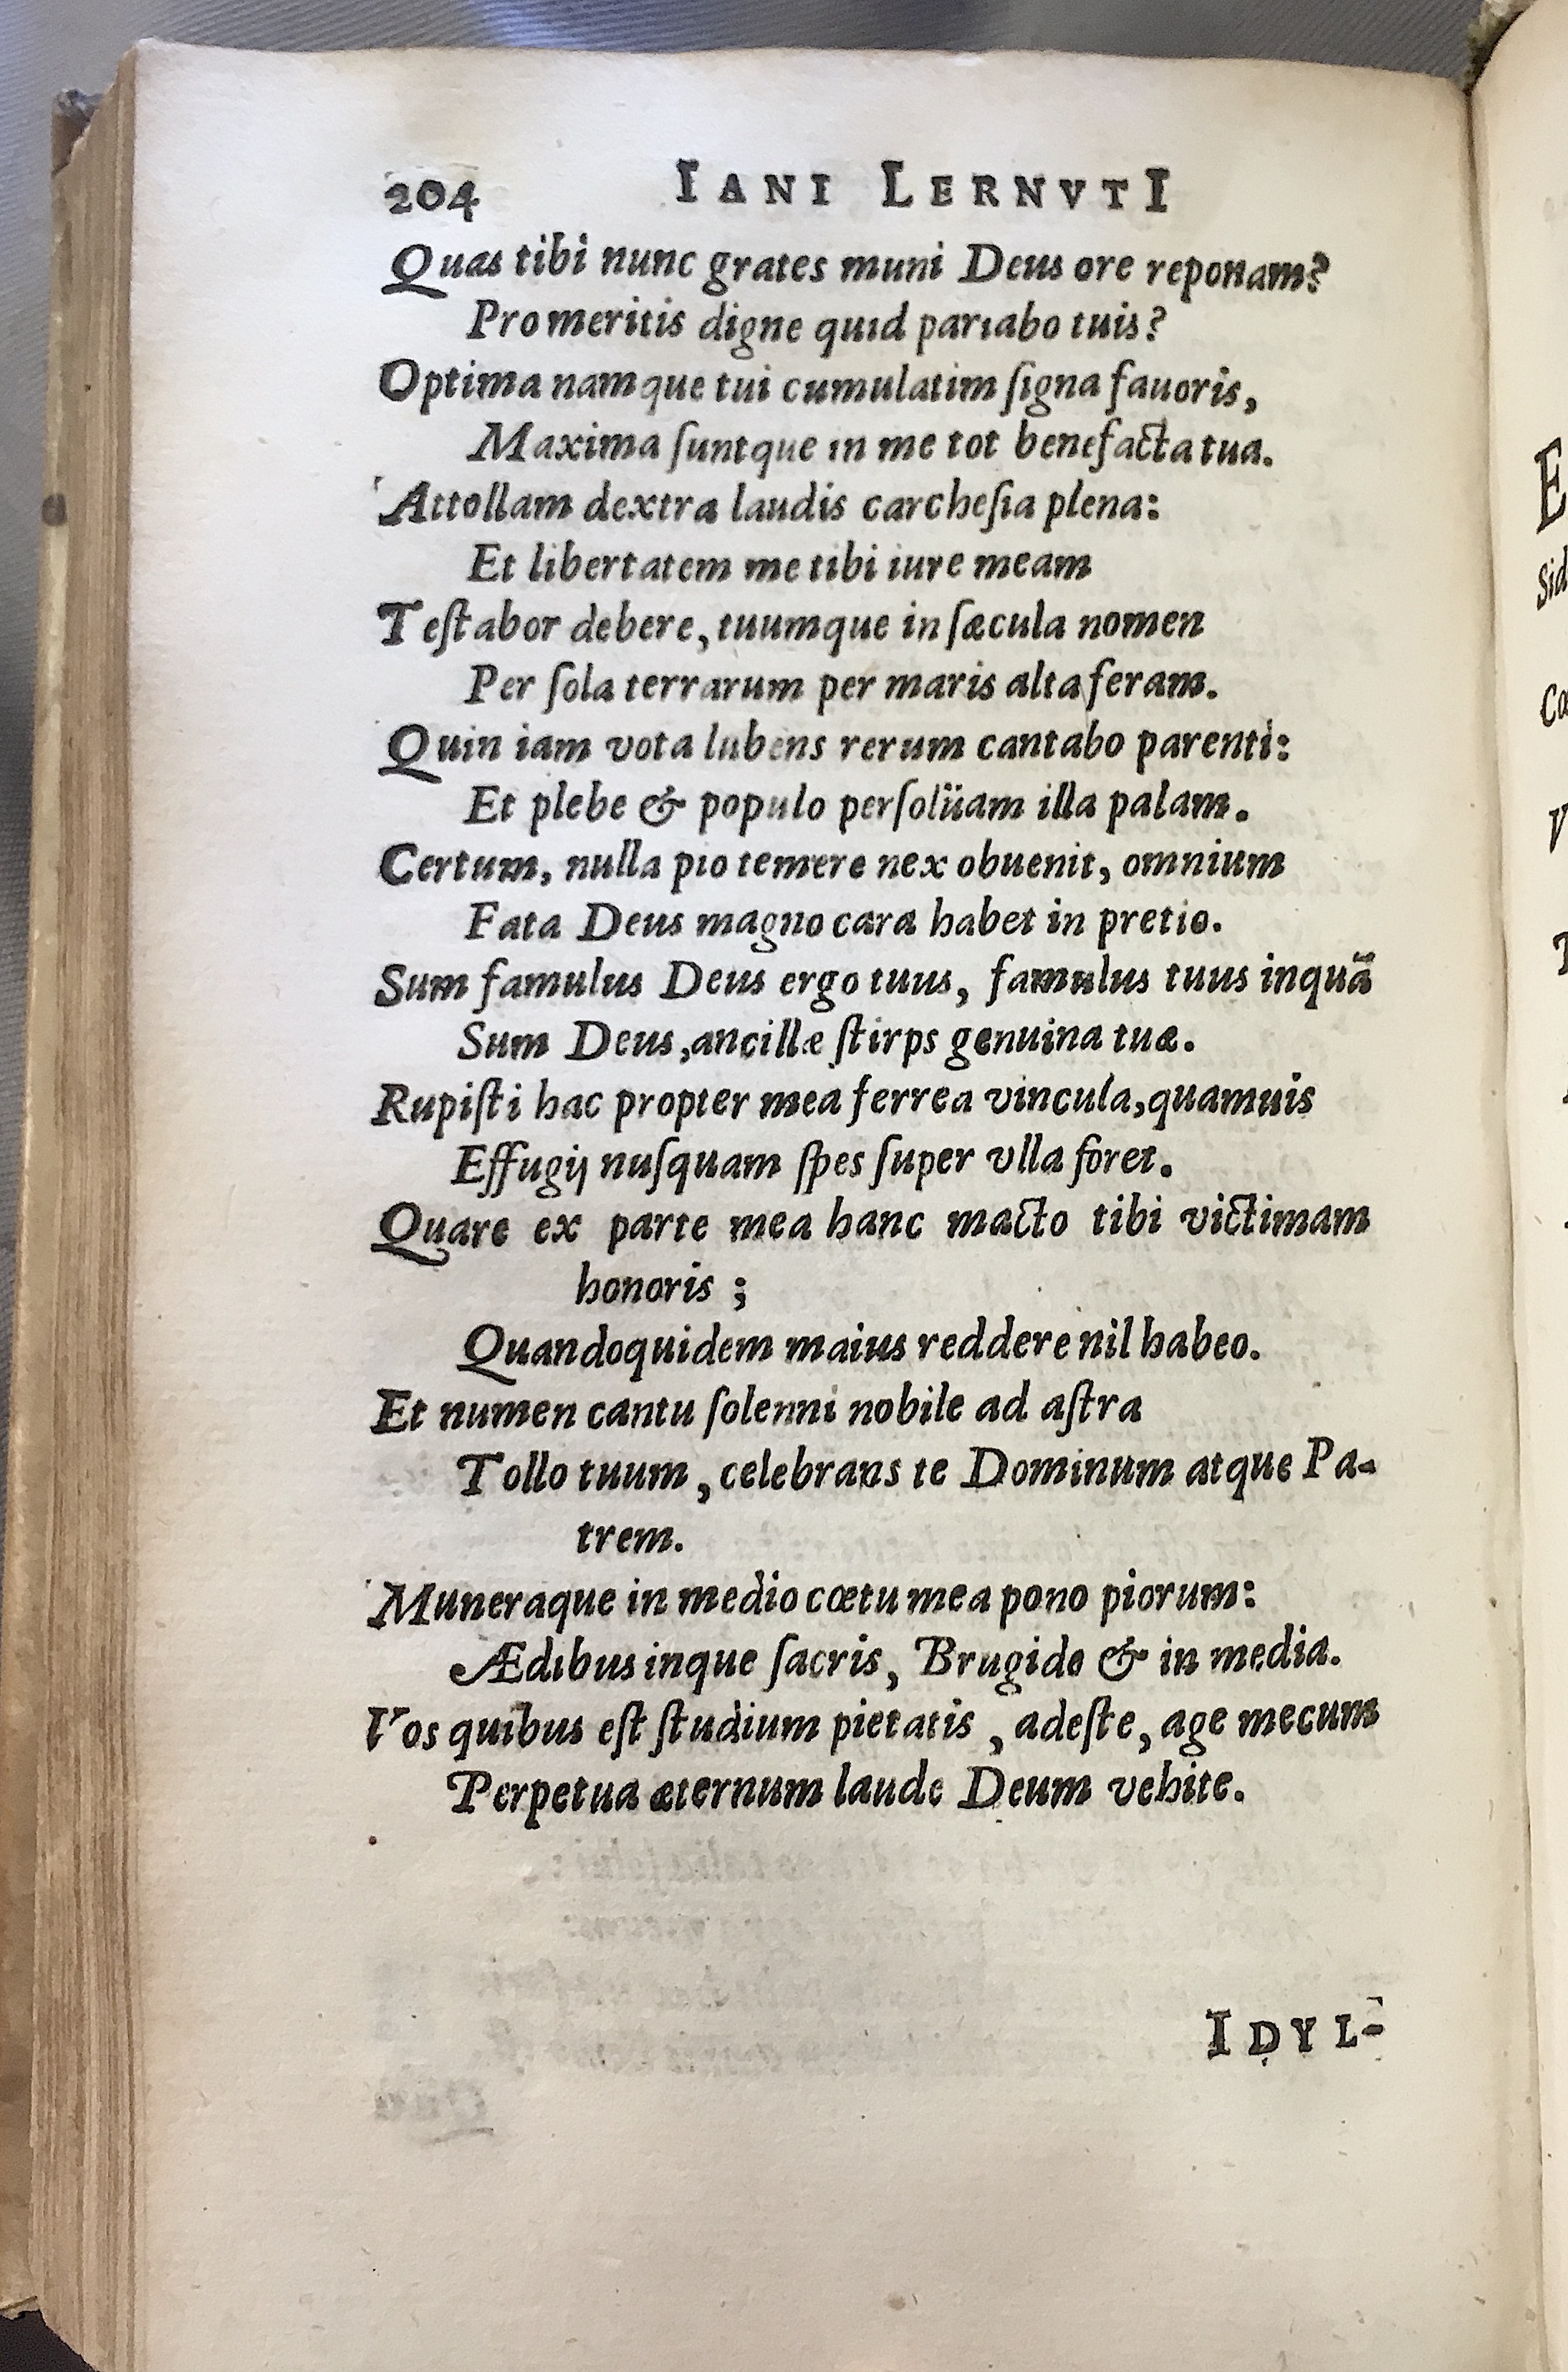 204 IANI LERNVTI
Quas tibi nunc grates muni Deus ore reponam?
Pro meritis digne quid pariabo tuis?
Optima namque tui cumulatim ſigna fauoris,
Maxima ſuntque in me tot benefacta tua.
Attollam dextra laudis carcheſia plena:
Et libertatem me tibi iure meam
Teſtabor debere, tuumque in ſæcula nomen
Per ſola terrarum per maris alta feram.
Quin iam vota lubens rerum cantabo parenti:
Et plebe & populo perſolüam illa palam.
Certum, nulla pio temere nex obuenit, omnium
Fata Deus magno cara habet in pretio.
Sum famulus Deus ergo tuus, famulus tuus inquã
Sum Deus, ancillæ ſtirps genuina tuæ.
Rupiſti hac propter mea ferrea vincula, quamuis
Effugij nuſquam ſpes ſuper vlla foret.
Quare ex parte mea hanc macto tibi victimam
honoris;
Quandoquidem maius reddere nil habeo.
Et numen cantu ſolenni nobile ad aſtra
Tollo tuum, celebrans te Dominum atque Pa-
trem.
Muneraque in medio cœtu mea pono piorum:
Ædibus inque ſacris, Brugide & in media.
Vos quibus eſt ſtudium pietatis, adeſte, age mecum
Perpetua æternum laude Deum vehite.
IDYL-